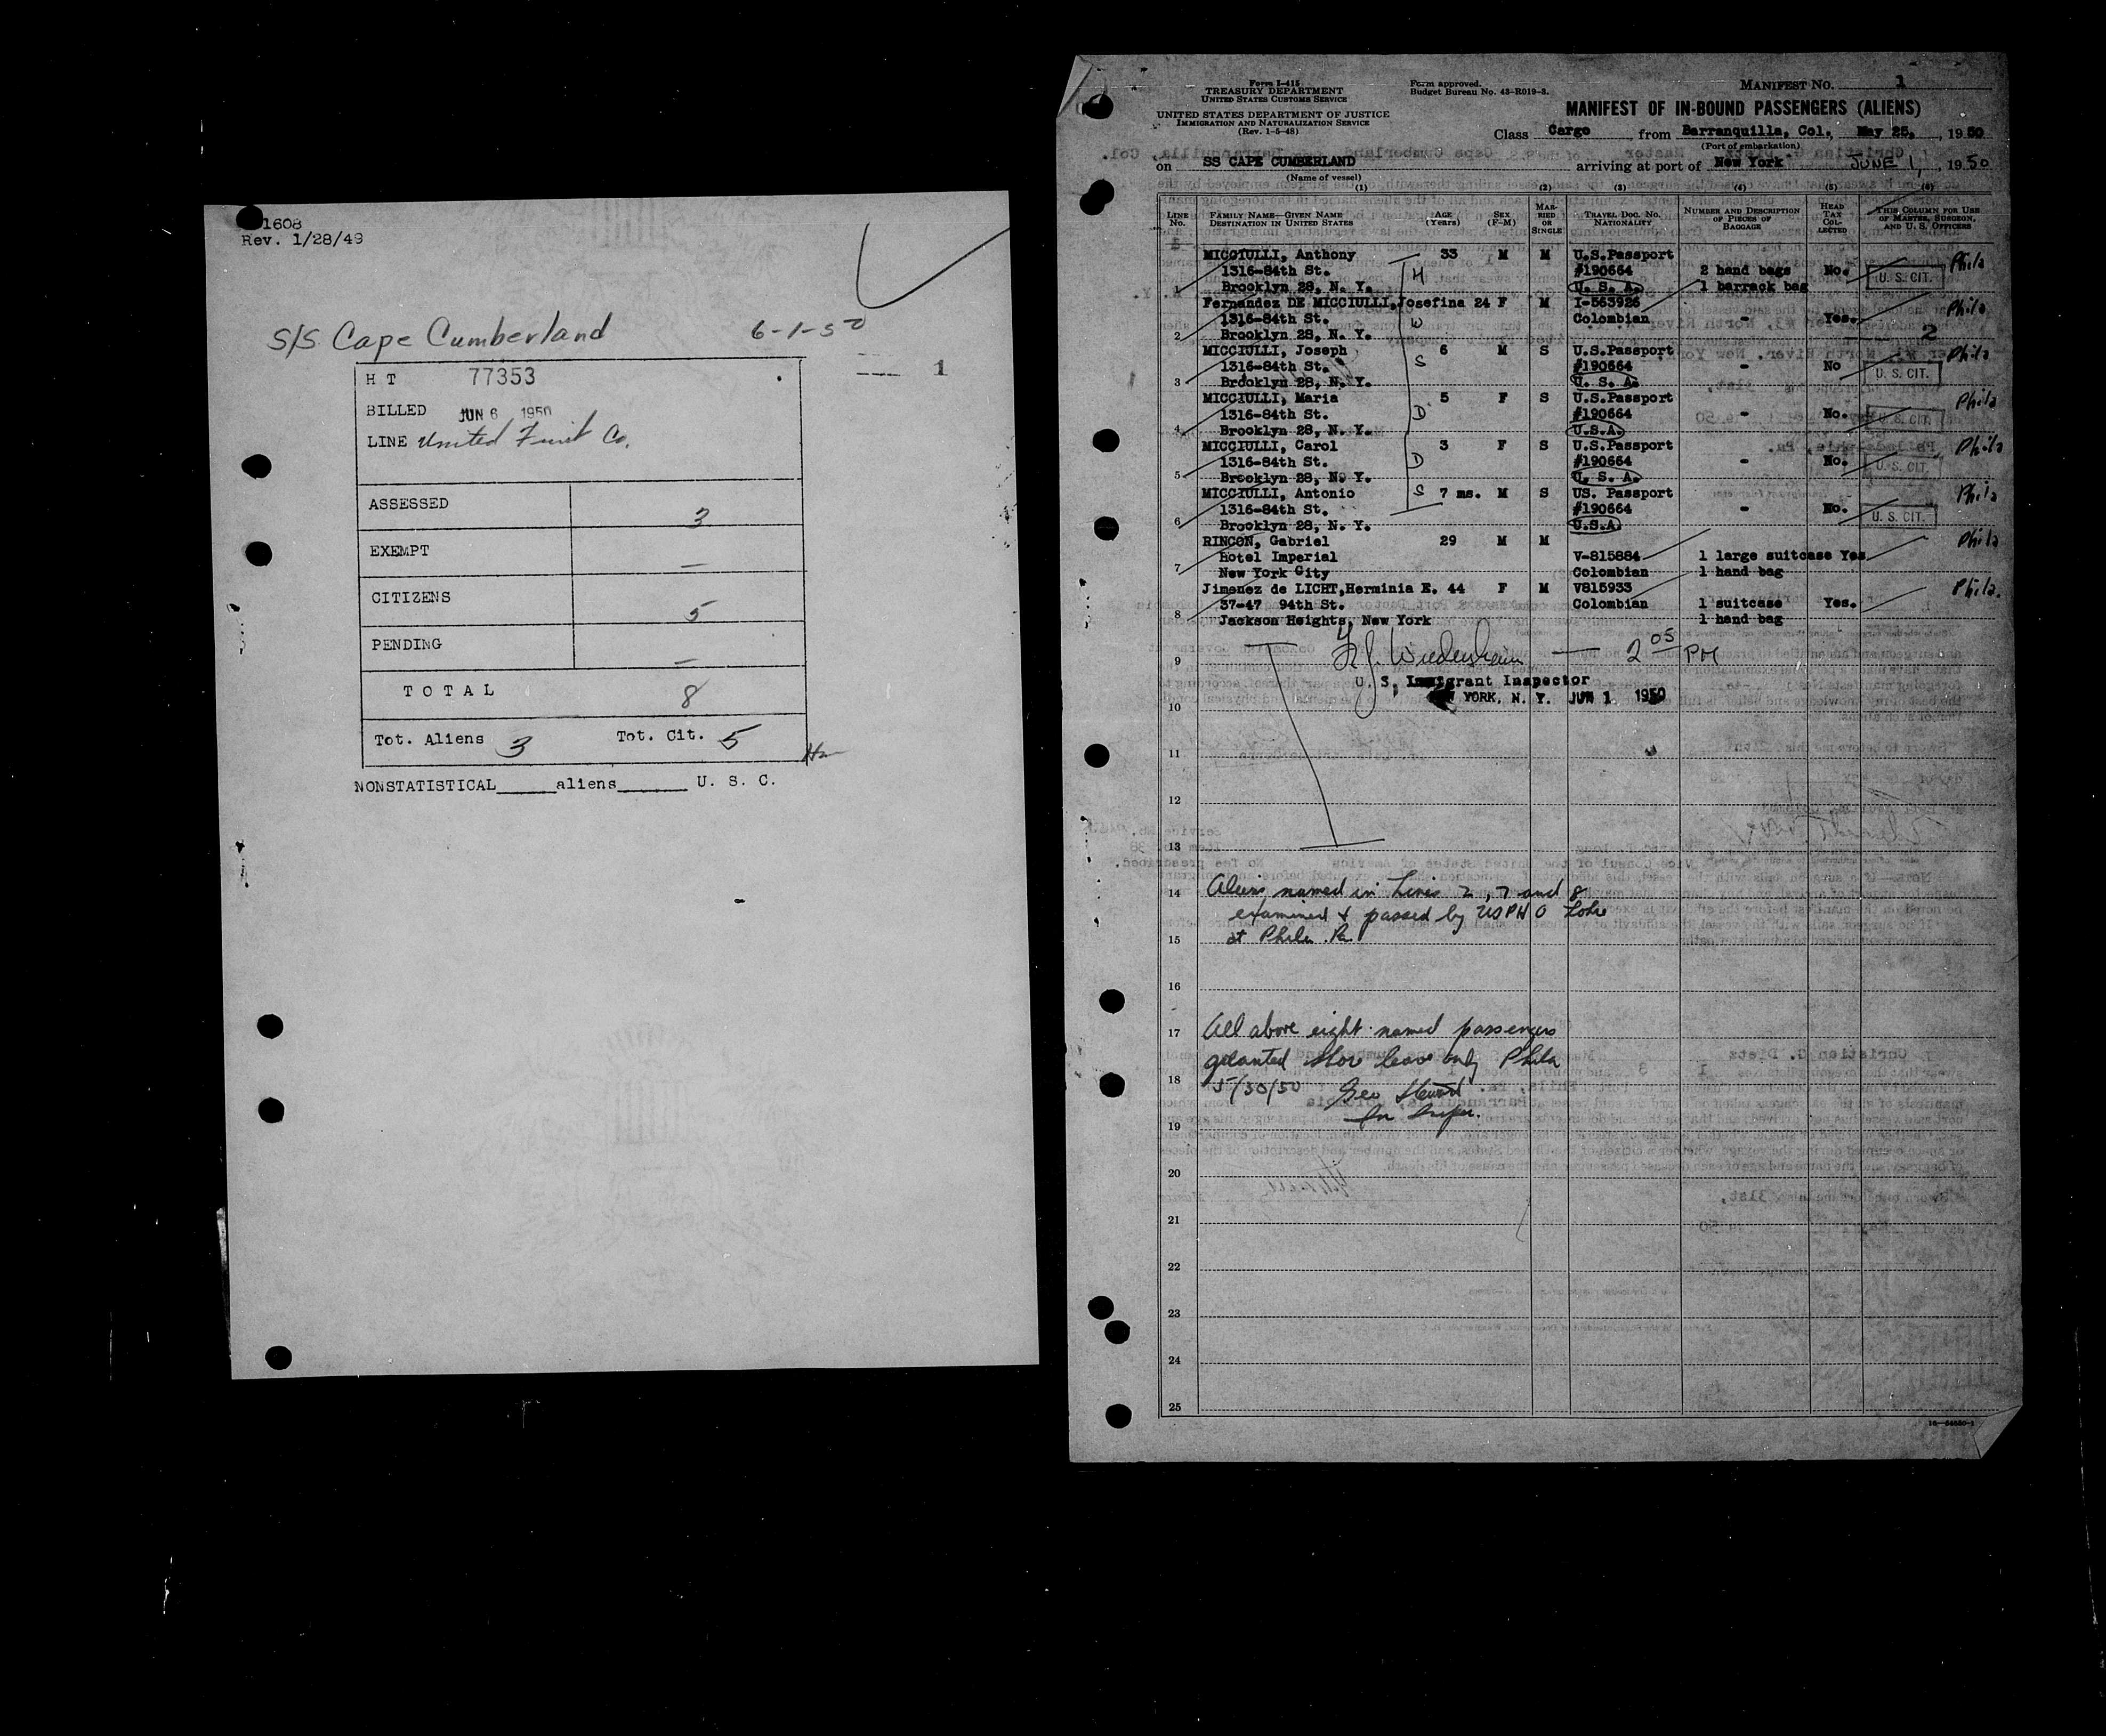 1608
Rev. 1/28/49
S/S Cape Cumberland 6-1-50
1
H T 77353
BILLED JUN 6 1950
LINE United Fruit Co.
ASSESSED 3
EXEMPT —
CITIZENS 5
PENDING —
T O T A L 8
Tot. Aliens 3 Tot. Cit. 5
NONSTATISTICAL aliens U. S. C.
Form I-415
TREASURY DEPARTMENT
UNITED STATES CUSTOMS SERVICE
UNITED STATES DEPARTMENT OF JUSTICE
IMMIGRATION AND NATURALIZATION SERVICE
(Rev. 1-5-48)
Form approved.
Budget Bureau No. 43-R019-3.
MANIFEST NO. 1
MANIFEST OF IN-BOUND PASSENGERS (ALIENS)
Class Cargo from Barranquilla, Col., May 25, , 1950
(Port of embarkation)
on SS CAPE CUMBERLAND arriving at port of New York JUNE 1, , 1950
(Name of vessel)
(1) (2) (3) (4) (5) (6)
LINE No. FAMILY NAME—GIVEN NAME DESTINATION IN UNITED STATES AGE (Years) SEX (F-M) MARRIED OR SINGLE TRAVEL DOC. NO. NATIONALITY NUMBER AND DESCRIPTION OF PIECES OF BAGGAGE HEAD TAX COLLECTED THIS COLUMN FOR USE OF MASTER, SURGEON, AND U. S. OFFICERS
MICCIULLI, Anthony 33 M M U.S.Passport Phila
1316-84th St. H #190664 2 hand bags No. U. S. CIT.
1 Brooklyn 28, N. Y. U. S. A. 1 barrack bag
Fernandez DE MICCIULLI, Josefina 24 F M I-563926 Phila
1316-84th St. W Colombian - Yes.
2 Brooklyn 28, N. Y. 2
MICCIULLI, Joseph 6 M S U.S.Passport Phila
1316-84th St. S #190664 - No U. S. CIT.
3 Brooklyn 28, N. Y. U. S. A.
MICCIULLI, Maria 5 F S U.S.Passport Phila
1316-84th St. D #190664 - No. U. S. CIT.
4 Brooklyn 28, N. Y. U.S.A.
MICCIULLI, Carol 3 F S U.S.Passport Phila
1316-84th St. D #190664 - No. U. S. CIT.
5 Brooklyn 28, N. Y. U. S. A.
MICCIULLI, Antonio S 7 ms. M S US. Passport Phila
1316-84th St. #190664 - No. U. S. CIT.
6 Brooklyn 28, N. Y. U.S.A
RINCON, Gabriel 29 M M Phila
Hotel Imperial V-815884 1 large suitcase Yes
7 New York City Colombian 1 hand bag
Jimenez de LICHT, Herminia E. 44 F M V815933 Phila.
37-47 94th St. Colombian 1 suitcase Yes.
8 Jackson Heights, New York 1 hand bag
9 2 05 PM
U. S. Immigrant Inspector
10 YORK, N. Y. JUN 1 1950
11
12
13
14 Aliens named in Lines 2, 7 and 8
examined & passed by USPHO
15 at Phila Pa.
16
17 All above eight named passengers
granted shore leave only Phila
18 5/30/50 Geo
19
20
21
22
23
24
25